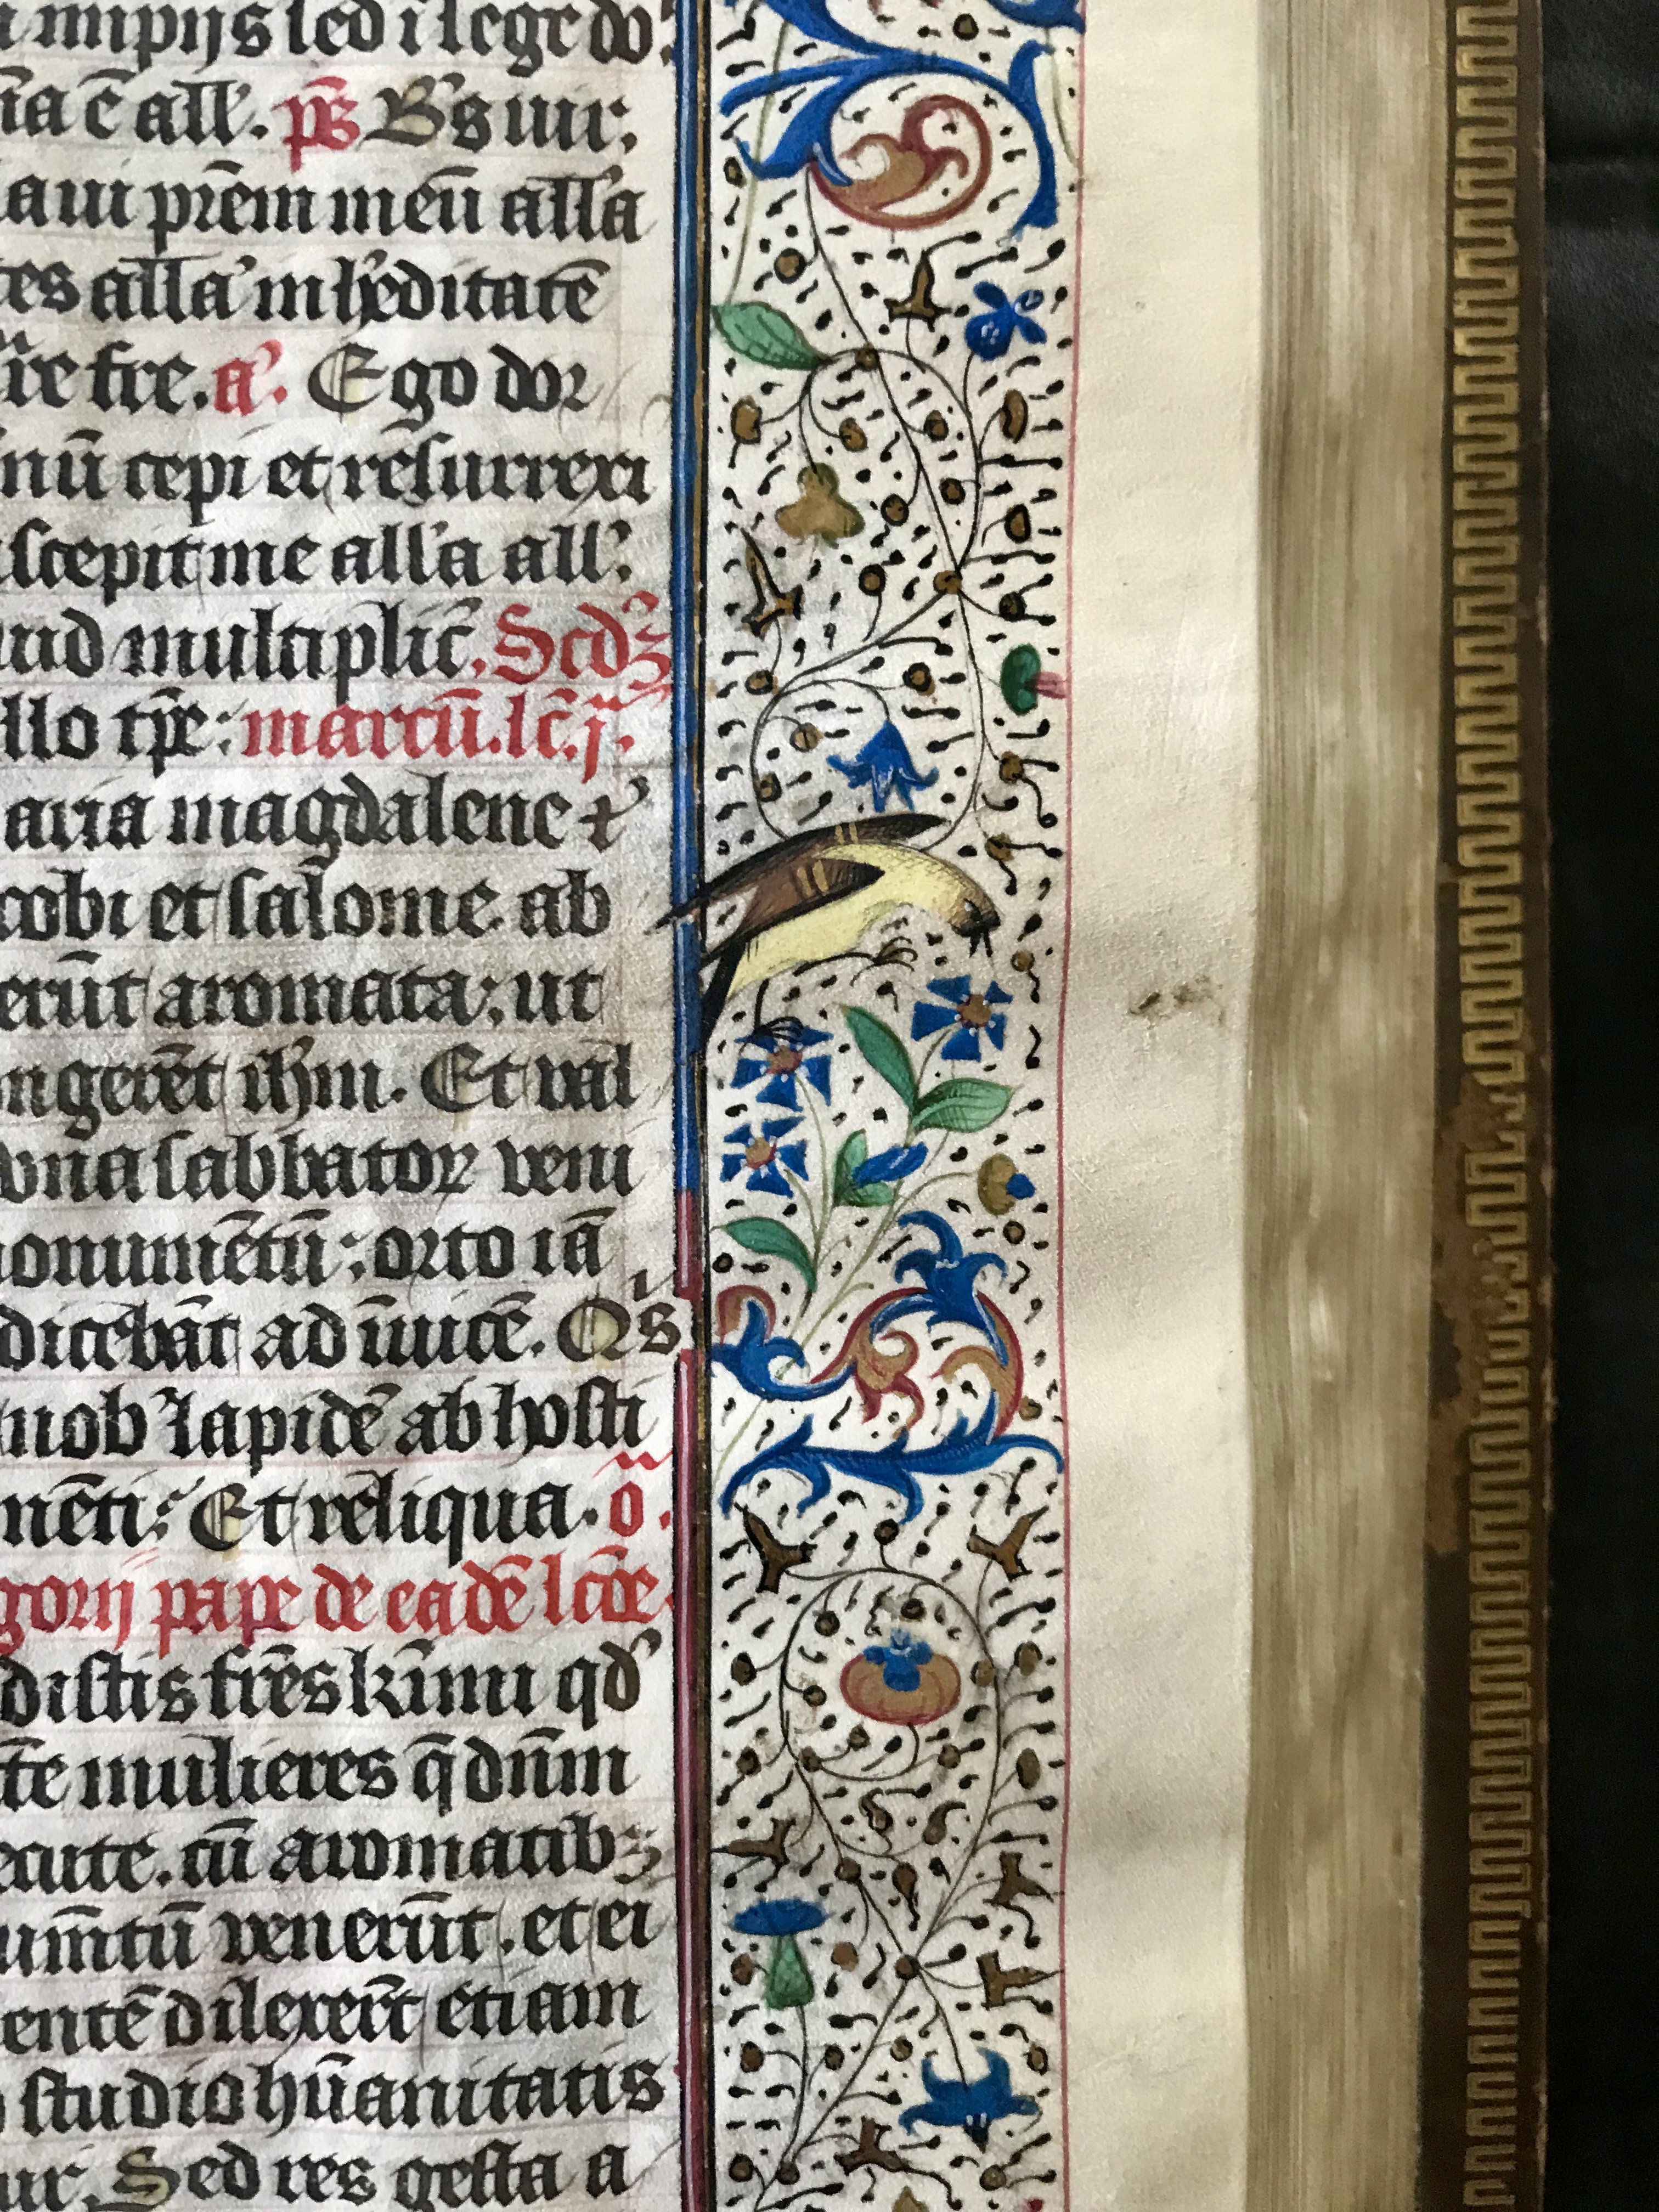 impijs sed i lege do
c̄ all'. ps̄ B's uir;
aui prēm meū all'a
tes all'a in h'editatē
fre. a'. Ego dor
nū cepi et rēsurrexi
scepit me all'a all';
uid multiplic̄. Scdꝫ
llo tp̄e: marcū. lc̄. j.
aria magdalene ⁊
cobi et salome ab
erūt aromata; ut
ngerēt ih̄m. Et val
vna sabbatoꝝ veni
onumētū; orto iā
dicebāt ad īuicē. Q's
nob' lapidē ab hosti
nēti; Et reliqua. o
gorij pape de eadē lcōe
distis frēs k̄imi qd'
te mulieres q̄ dn̄m
ecute. cū aromatibꝫ
um̄tū venerūt. et ei
entē dilexer̄t etiam
studio hūanitatis
ur. Sed res gesta a